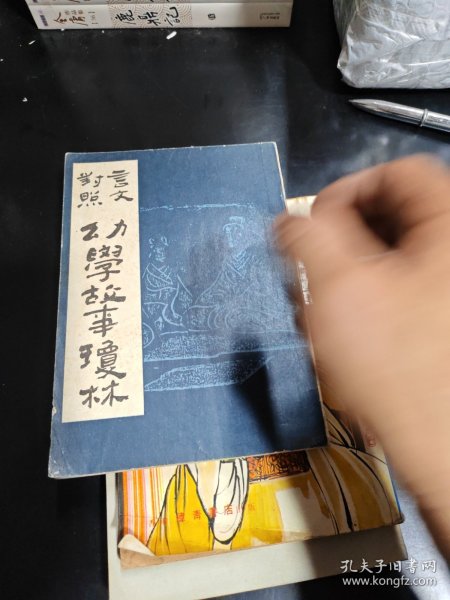 鹿鼎記
言文
對照
幼學故事瓊林
孔夫子旧书网
www.kongfz.com